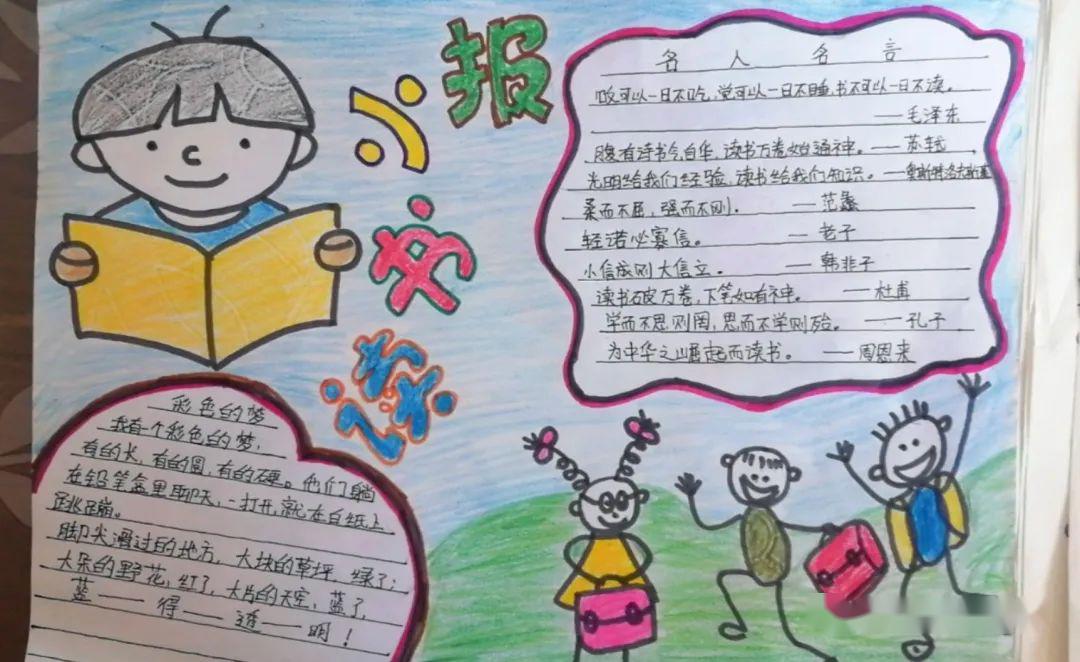 读书小报
名人名言
饭可以一日不吃,觉可以一日不睡,书不可以一日不读。
——毛泽东
腹有诗书气自华,读书万卷始通神。——苏轼
光明给我们经验,读书给我们知识。——奥斯特洛夫斯基
柔而不屈,强而不刚。——范蠡
轻诺必寡信。——老子
小信成则大信立。——韩非子
读书破万卷,下笔如有神。——杜甫
学而不思则罔,思而不学则殆。——孔子
为中华之崛起而读书。——周恩来
彩色的梦
我有一个彩色的梦,
有的长,有的圆,有的硬。他们躺
在铅笔盒里聊天,一打开,就在白纸上
跳蹦。
脚尖滑过的地方,大块的草坪,绿了;
大朵的野花,红了,大片的天空,蓝了,
蓝——得——透——明!